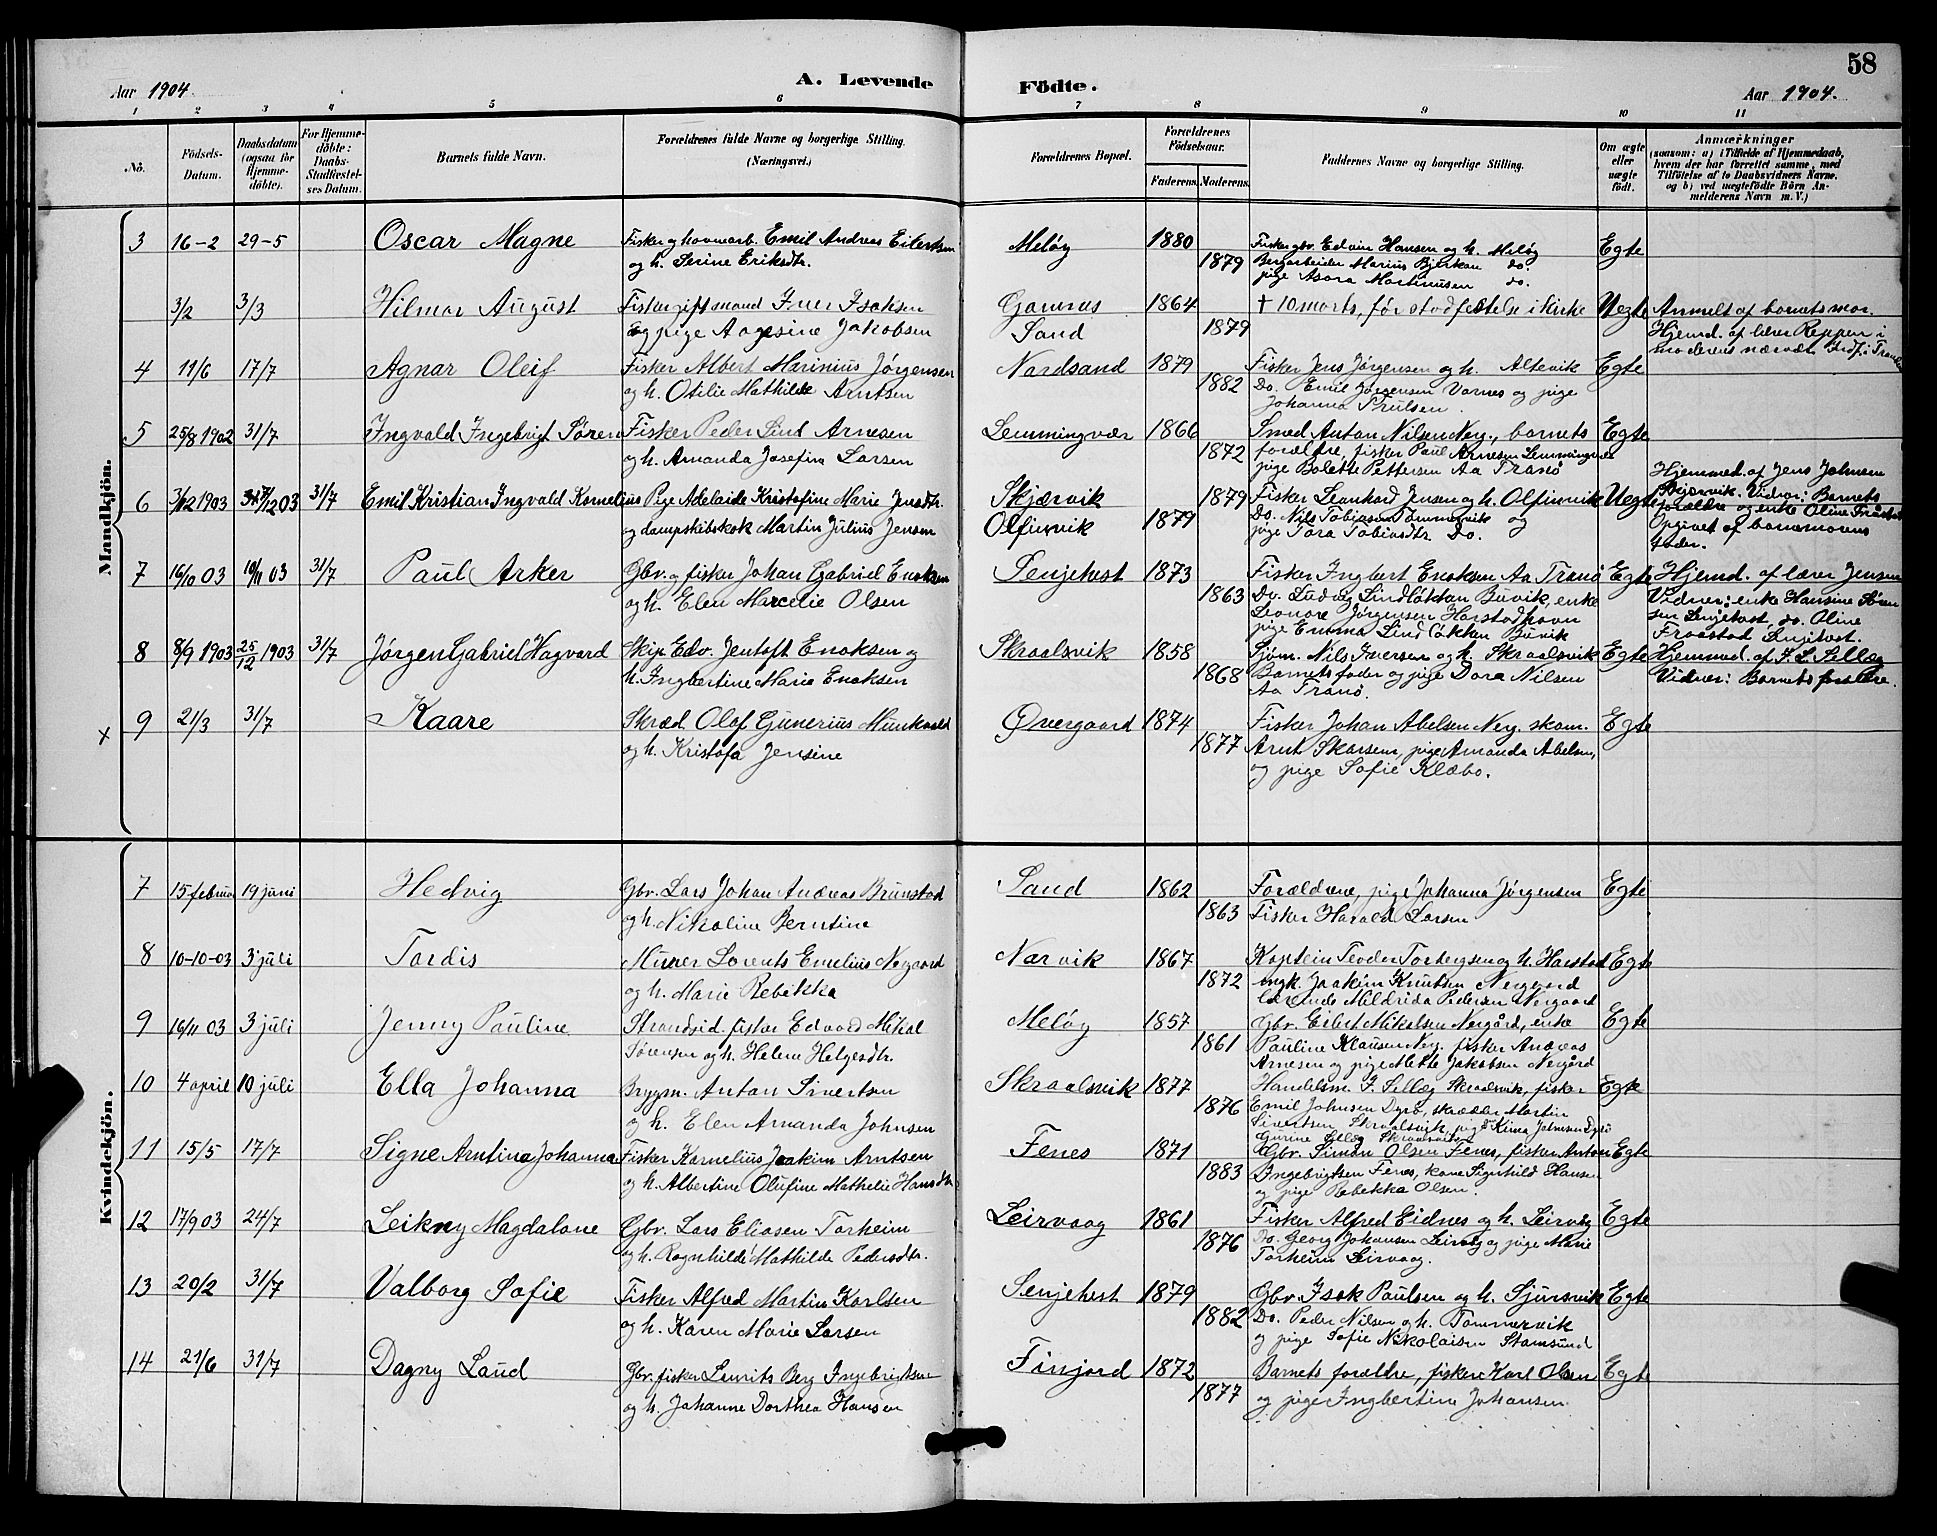 58
Aar 1904.
A. Levende
Födte.
Aar 1904.
1 2 3 4 5 6 7 8 9 10 11
No.
Födsels-Datum.
Daabsdatum (ogsaa for Hjemme-döbte).
For Hjemme-döbte: Daabs-Stadfæstel-ses Datum.
Barnets fulde Navn.
Forældrenes fulde Navne og borgerlige Stilling. (Næringsvei.)
Forældrenes Bopæl.
Forældrenes Födselsaar.
Faderens. Moderens.
Faddernes Navne og borgerlige Stilling.
Om ægte eller uægte födt.
Anmærkninger
(saasom: a) i Tilfælde af Hjemmedaab,
hvem der har forrettet samme, med
Tilföielse af to Daabsvidners Navne,
og b) ved uægtefödte Börn An-
melderens Navn m. V.)
Mandkjön.
3 16-2 29-5 Oscar Magne Fisker og havnearb. Emil Andreas Eilertsen
og h. Serine Eriksdtr.
Meløy 1880 1879
Fisker gbr. Edvin Hansen og h. Meløy
Bergarbeider Marius Bjerkan do.
pige Asora Martinusen do.
Egte
3/2 3/3 Hilmar August Fisker gift mand Iver Isaksen
og pige Aagesine Jakobsen
Sand 1864 1879
† 10 marts, før stadfæstelse i kirke
Uegte Anmelt af barnets mor.
Hjemd. af lærer Reppen i
moderens nærvær.
4 11/6 17/7 Agnar Oleif Fisker Albert Marinius Jørgensen
og h. Otilie Mathilde Arntsen
Nordsand 1879 1882
Fisker Jens Jørgensen og h. Altevik
Do. Emil Jørgensen Vornes og pige
Johanna
Egte
5 25/8 1902 31/7 Ingvald Ingebrigt Søren Fisker Peder Lind Arnesen
og h. Amanda Josefin Larsen
Lemmingvær 1866 1872
Smed Anton Nilsen Neg., barnets
forældre, fisker Paul Arnesen Lemmingvær
pige Bolette Pettersen Aa Tranø
Egte
6 3/12 1903 12 03 31/7 Emil Kristian Ingvald Kornelius Pige Adelaide Kristofine Marie Jensdtr.
og dampskibskok Martin Julius Jensen
Skjærvik
Olfinsvik 1879 1879
Fisker Leonhard Jensen og h. Olfinsvik
Do. Nils Tobiassen Tømmervik og
pige Tora Tobiasdtr Do.
Uegte Hjemmed. af Jens Johnsen
Skjærvik. Vidner: Barnets
forældre og enke Oline
Opgivet af barnemorens
fader.
7 16/10 03 10/11 03 31/7 Paul Arker Gbr. og fisker Johan Gabriel Enoksen
og h. Elen Marcelie Olsen
Senjehest 1873 1863
Fisker Ingbert Enoksen Aa Tranø
Do. Ludvig Lind Løkkan Buvik, enke
Leonore Jørgensen Harstadhavn
pige Emma Lind Løkken Buvik
Egte Hjemd. af lærer Jensen
Vidner: enke Hansine Søren-
sen Senjehest, do. Oline
Fraastad Senjehest.
8 8/9 1903 25/12 1903 31/7 Jørgen Gabriel Hagvard Skip. Edv. Jentoft Enoksen og
h. Ingbertine Marie Enoksen
Skraalsvik 1858 1868
Sjøm. Nils Iversen og h. Skraalsvik
Barnets fader og pige Dora Nilsen
Aa Tranø.
Egte Hjemmed. af I. L. Selläg
Vidner: Barnets forældre.
x 9 21/3 31/7 Kaare Skræd. Olaf Gunerius Munkvold
og h. Kristofa Jensine
Øvergaard 1874 1877
Fisker Johan Abelsen Neg. skom.
Arnt Skarsem, pige Amanda Abelsen,
og pige Sofie Klæbo.
Egte
Kvindekjön.
7 15 februar 19 juni Hedvig Gbr. Lars Johan Andreas Brunstad
og h. Nikoline Berntine
Sand 1862 1863
Forældrene, pige Johanna Jørgensen
Fisker Harald Larsen
Egte
8 10-10-03 3 juli Tordis Murer Lorents Emelius Negaard
og h. Marie Rebekka
Narvik 1867 1872
Kaptein Teoder Torbergsen og h. Harstad
ungk. Joakim Knutsen Nergaard
Mildrida Pedersen Nergaard
Egte
9 16/11 03 3 juli Jenny Pauline Strandsid. fisker Edvard Mikal
Sørensen og h. Helene Helgesdtr.
Meløy 1857 1861
Gbr. Eilert Mikalsen Nergård, enke
Pauline Klausen Neg. fisker Andreas
Arnesen og pige Mette Jakobsen Nergård
Egte
10 4 april 10 juli Ella Johanna Brygm. Anton Sivertsen
og h. Elen Amanda Johnsen
Skraalsvik 1877 1876
Handelsm. I. Selläg Skraalsvik, fisker
Emil Johnsen Dyrø, skrædder Martin
Sivertsen Skraalsvik, pige Kima Johnsen Dyrø
Gurine Selläg Skraalsvik
Egte
11 15/5 17/7 Signe Arntine Johanna Fisker Kornelius Joakim Arntsen
og h. Albertine Olufine Mathelie Hansdtr
Fenes 1871 1883
Gbr. Simon Olsen Fenes, fisker Anton
Ingebrigtsen Fenes, kone Signhild Hansen
og pige Rebekka Olsen.
Egte
12 17/9 03 24/7 Leikny Magdalone Gbr. Lars Eliasen Torheim
og h. Ragnhilde Mathilde Pedersdtr.
Leirvaag 1861 1876
Fisker Alfred Eidnes og h. Leirvåg
Do. Georg Johansen Leirvåg og pige Marie
Torheim Leirvaag.
Egte
13 20/2 31/7 Valborg Sofie Fisker Alfred Martin Karlsen
og h. Karen Marie Larsen
Senjehest 1879 1882
Gbr. Isak Paulsen og h. Sjursvik
Do. Peder Nilsen og h. Tømmervik
og pige Sofie Nikolaisen Stamsund
Egte
14 21/6 31/7 Dagny Laud Gbr. fisker Laurits Berg Ingebrigtsen
og h. Johanne Dorthea Hansen
Finjord 1872 1877
Barnets forældre, fisker Karl Olsen
og pige Ingbertine Johansen.
Egte